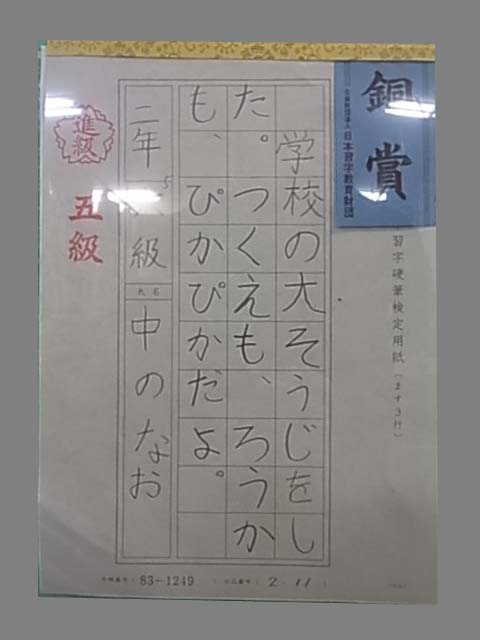 銅賞
公益財団法人 日本習字教育財団
習字硬筆検定用紙（ます3行）
学校の大そうじをし
た。つくえも、ろうか
も、ぴかぴかだよ。
二年
級
氏名
中のなお
進級
五級
83-1249
2-11